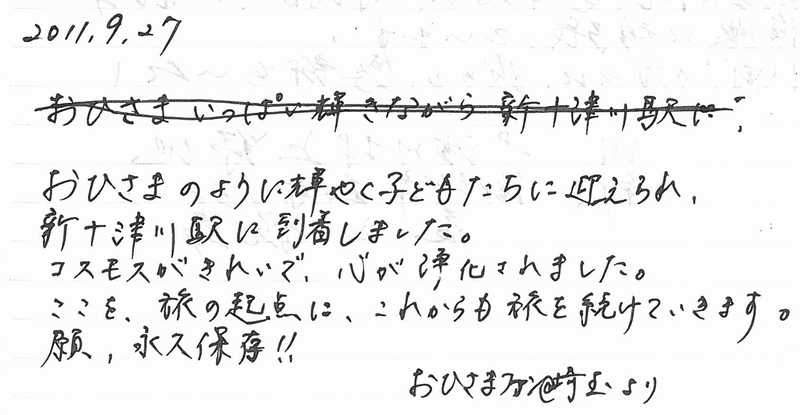 2011.9.27
おひさまいっぱい輝きながら新十津川駅に、
おひさまのように輝やく子どもたちに迎えられ、
新十津川駅に到着しました。
コスモスがきれいで、心が浄化されました。
ここを、旅の起点に、これからも旅を続けていきます。
願，永久保存!!
おひさまファン@埼玉より